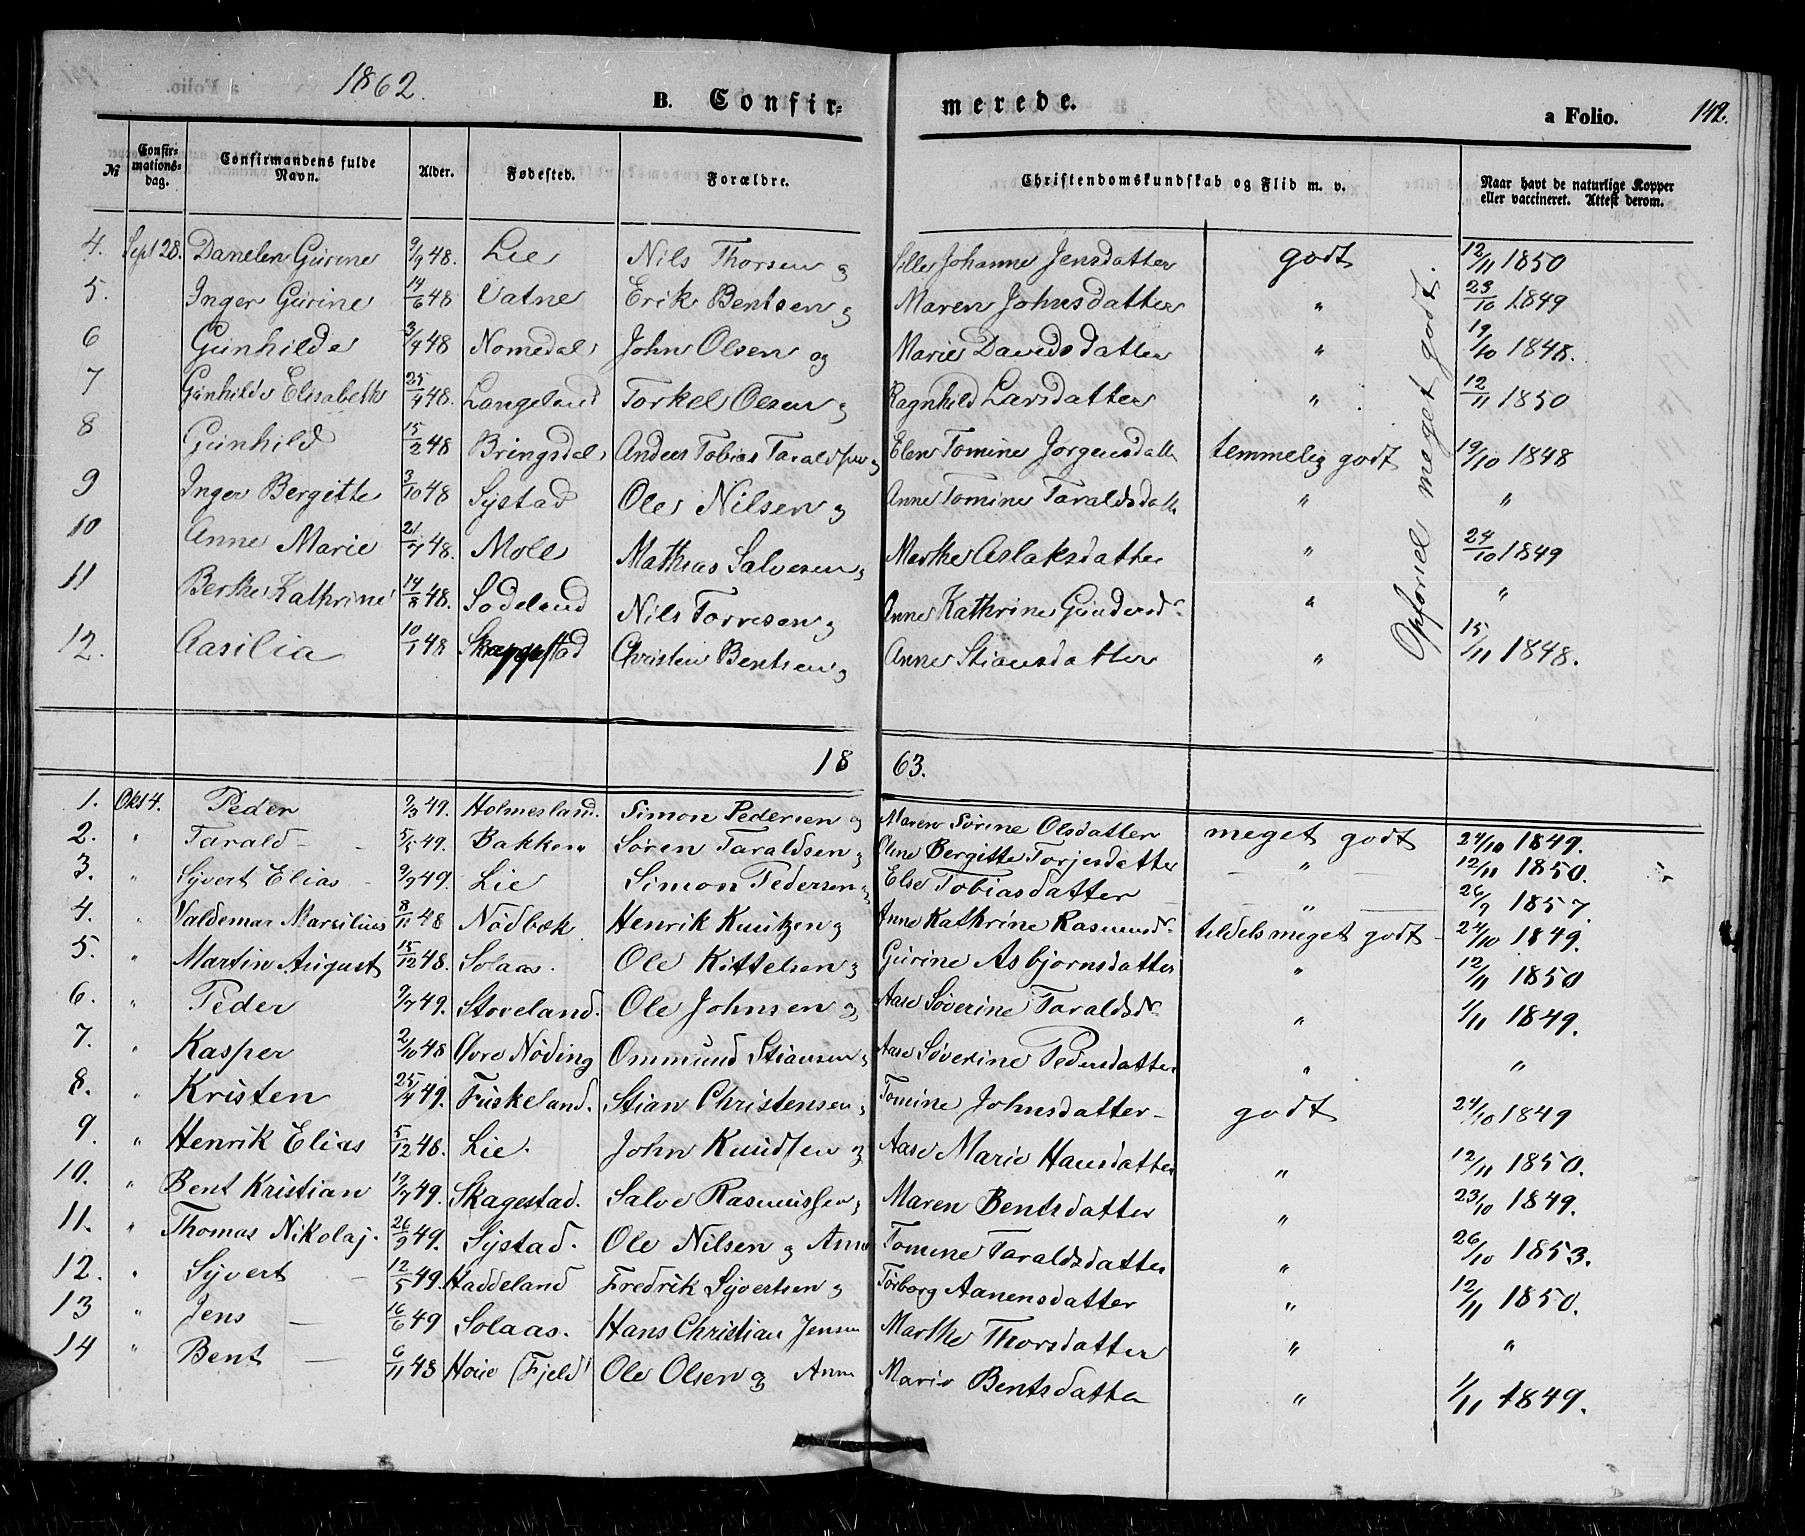 1862.
B. Confirmerede.
a Folio. 142.
№ Confirmationsdag. Confirmandens fulde Navn. Alder. Fødested. Forældre. Christendomskundskab og Flid m. v. Naar havt de naturlige Kopper eller vaccineret. Attest derom.
4. Sept 28. Danelen Gurine 9/9 48. Lie Nils Thorsen og Sille Johanne Jensdatter godt 12/11 1850
5. Inger Gurine 14/6 48 Vatne Erik Bentsen og Maren Johnsdatter " 23/10 1849
6 Gunhilde 3/9 48 Nomedal John Olsen og Marie Davidsdatter " 19/10 1848.
7 Gunhilde Elisabeth 25/4 48. Langeland Torkel Olsen og Ragnhild Larsdatter " 12/11 1850
8 Gunhild 15/2 48 Bringsdal Anders Tobias Taraldsen og Elen Tomine Jorgensdatt temmelig godt 19/10 1848
9 Inger Bergitte 3/10 48 Systad Ole Nilsen og Anne Tomine Taraldsdatt " "
10 Anne Marie 21/7 48. Moll Mathias Salvesen og Marthe Aslaksdatter " 24/10 1849
11 Berthe Kathrine 14/8 48. Sodeland Nils Torresen og Anne Kathrine Gundersdr " "
12. Aasilia 10/1 48 Skagestad Christen Bentsen og Anne Stiansdatter " 15/11 1848.
Opførsel meget godt.
1863.
1. Okt 4. Peder 9/3 49. Holmesland. Simon Pedersen og Maren Sørine Olsdatter meget godt 24/10 1849.
2. " Tarald 5/5 49. Bakken Søren Taraldsen og Oline Bergitte Torjesdatter " 12/11 1850.
3. " Syvert Elias 9/9 49. Lie Simon Pedersen og Else Tobiasdatter " 26/9 1857.
4. " Valdemar Marsilius 8/11 48 Nodbæk Henrik Knutzen og Anne Kathrine Rasmusdr tildels meget godt 24/10 1849.
5. " Martin August 15/12 48. Solaas. Ole Kittelsen og Gurine Asbjornsdatter " 12/11 1850
6. " Peder 9/7 49. Stoveland. Ole Johnsen og Aase Søverine Taraldsdr " 1/11 1849.
7. " Kasper 2/10 48 Øvre Nøding Ommund Stiansen og Aase Søverine Pedersdatter " "
8. " Kristen 25/4 49. Fuskeland. Stian Christensen og Tomine Johnsdatter godt 24/10 1849
9. " Henrik Elias 5/12 48. Lie. John Knudsen og Aase Marie Hansdatter " 12/11 1850.
10. " Bent Kristian 19/7 49. Skagestad. Salve Rasmussen og Maren Bentsdatter " 23/10 1849.
11. " Thomas Nikolaj. 26/9 49. Systad. Ole Nilsen og Anne Tomine Taraldsdatter " 26/10 1853.
12. " Syvert 12/5 49. Haddeland Fredrik Syvertsen og Torborg Aanensdatter " 12/11 1850.
13 " Jens 16/6 49 Solaas. Hans Christian Jensen Marthe Thorsdatter " "
14 " Bent 6/11 48 Houe (Fjeld) Ole Olsen og Anne Marie Bentsdatter " 1/11 1849.